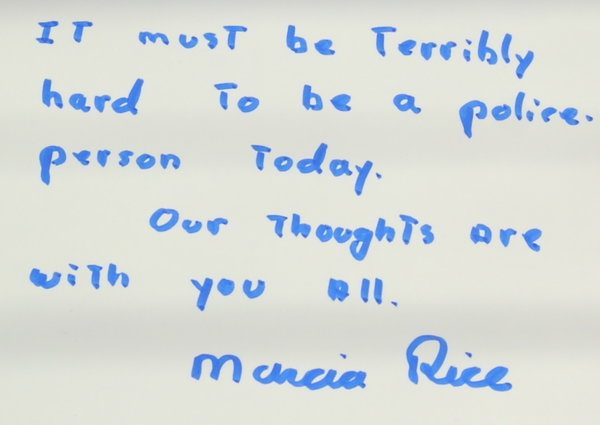 IT must be Terribly
hard To be a police.
person Today.
Our Thoughts are
with you All.
Marcia Rice